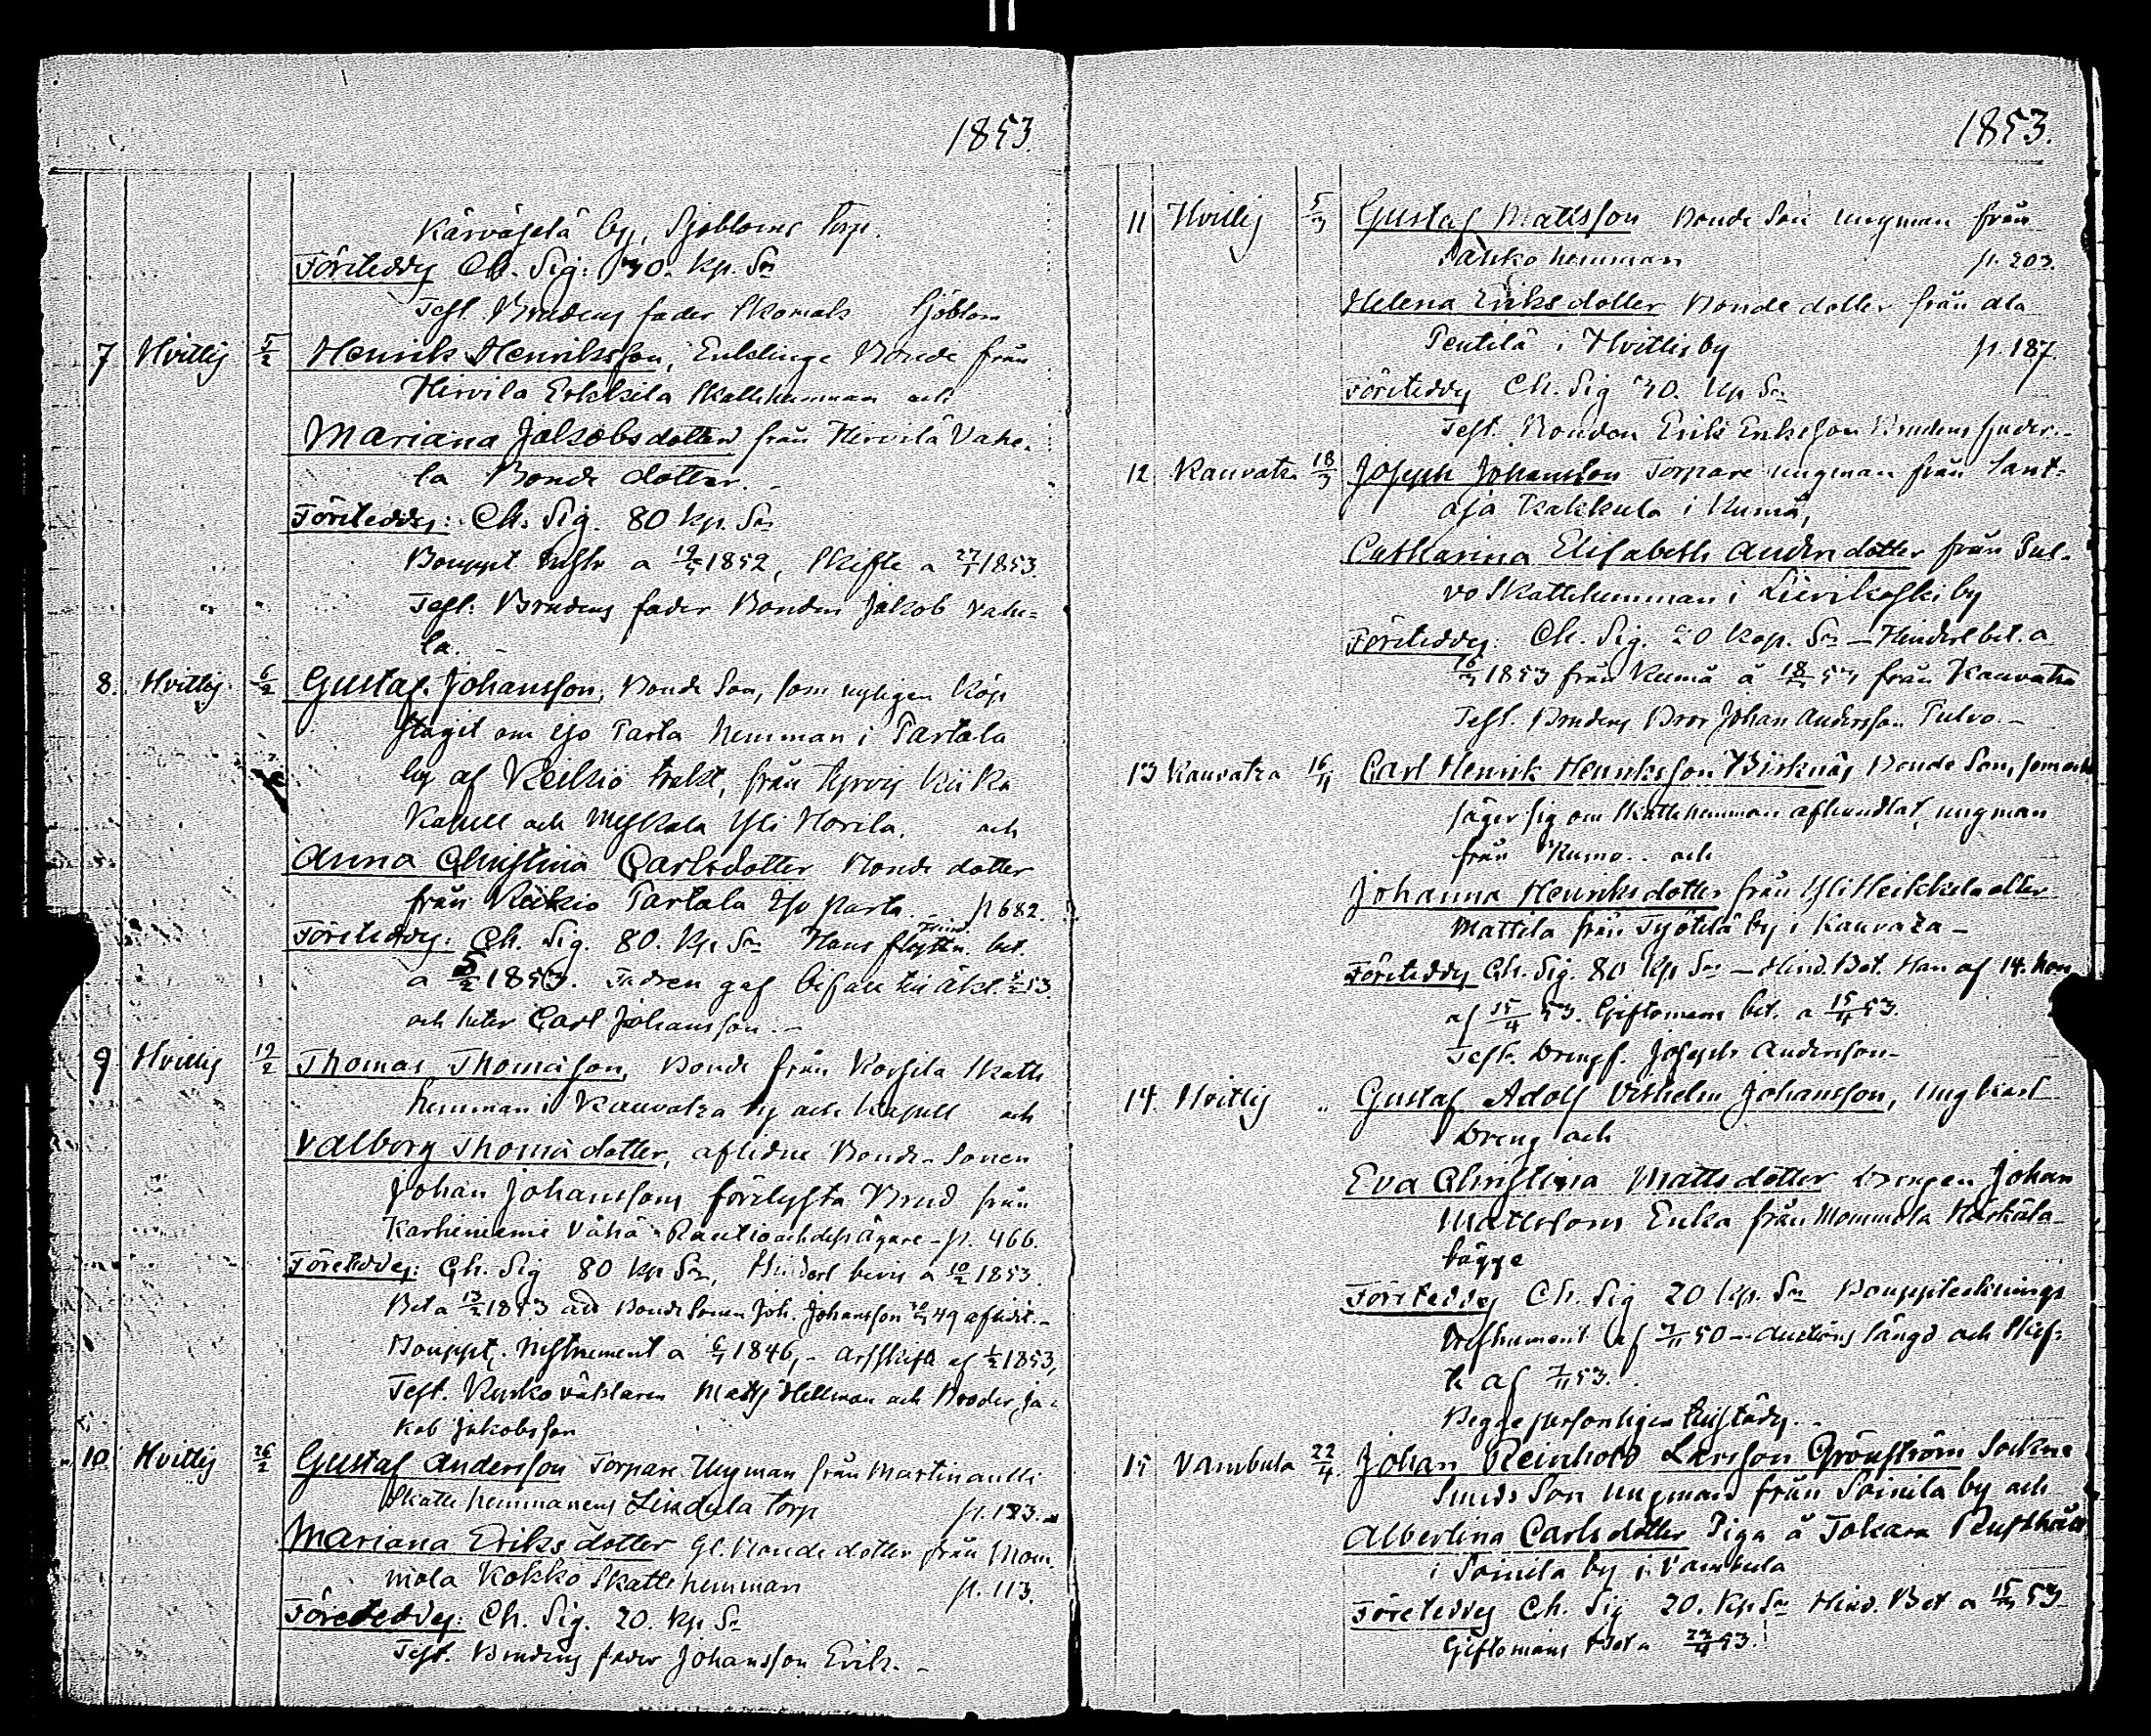 1853.
Kärväselä by, Sjöbloms Torp.
Företeddes Ch. Sig: 30. kp. Sr
Test. Brudens fader Skomak Sjöblom
7 Hvittis 5/2 Henrik Henriksson, Enklinge Bonde från
Hirvila Erkkila Skattehemman och
Mariana Jakobsdotter från Hirvilä Vahe-
la Bonde dotter.
Företeddes: Ch. Sig. 80 kp. Sr
Bouppt. Instr a 1852, Skifte a 27/1 1853.
Test: Brudens fader Bonden Jakob Vahe-
la.
8. Hvittis 6/2 Gustaf Johansson, Bonde Son, som nyligen köp
slagit om Ejo Parta hemman i Partala
by af Keikiö trakt, från Tyrvis Kiika
Kapell och Myskala Yli Norila. och
Anna Christina Carlsdotter Bonde dotter
från Keikiö Partala Ejo parta. p 682.
Företeddes: Ch. Sig. 80. Kp Sr Hans flyttn. bet.
a 5/2 1853. Fadren gaf bifall till äkt. 53.
och heter Carl Johansson.
9 Hvittis 19/2 Thomas Thomasson, Bonde från Korsila Skatte
hemman i Kauvatsa by och kapell och
Valborg Thomasdotter, aflidne Bonde-Sonen
Johan Johanssons förelysta Brud från
Karhiniemi Vähä-Rautio och dess ägare - p. 466.
Företeddes: Ch. Sig 80 kp Sr, Hinderl bevis a 10/2 1853.
Bet a 13/2 1853 att Bonde Sonen Joh. Johansson 49 aflidit.-
Bouppt. Instrument a 1846, - Arfskifte af 1/2 1853,
Test. Kyrkoväktaren Matts Hellman och Broder Ja-
kob Jakobsson
10 Hvittis 26/2 Gustaf Andersson Torpare Ungman från Martinanlli
Skatte hemmanens Lindula torp p. 123.
Mariana Eriksdotter Gl. Bonde dotter från Mom-
mola Kokko Skatte hemman p. 113.
Företeddes: Ch. Sig. 20. kp Sr
Test. Brudens fader Johansson Erik. -
1853.
11 Hvittis 5/3 Gustaf Mattsson Bonde Son ungman från
Panko hemman p. 203.
Helena Eriksdotter Bonde dotter från Ala
Pentilä i Hvittisby p. 187.
Företeddes Ch. Sig 30. kp Sr
Test. Bonden Erik Eriksson Brudens fader.-
12 Kauvatsa 18/3 Joseph Johansson Torpare ungman från Sant-
aja Kakkula i Kumå,
Catharina Elisabeth Andersdotter från Pul-
vo Skattehemman i Lievikoski by
Företeddes: Ch. Sig. 20 kop. Sr - Hinderl bet. a
1853 från Kumå a 18/3 53 från Kauvatsa
Test. Brudens Bror Johan Andersson Pulvo.-
13 Kauvatsa 16/4 Carl Henrik Henriksson Birknäs Bonde Son, som
säger sig om Skattehemman afhandlat, ungman
från Kumo.. och
Johanna Henriksdotter från Yli Heikkila eller
Mattila från Työtilä by i Kauvatsa -
Företeddes Ch. Sig. 80 Kp Sr - Hind. Bet. Han af 14. hon
af 15/4 53. Giftomans bet. a 15/4 53.
Test. Drengs. Joseph Andersson-
14. Hvittis " Gustaf Adolf Vilhelm Johansson, Ungkarl
Dreng och
Eva Christina Mattsdotter Drengen Johan
Mattssons Enka från Mommola Harhala
bägge
Företeddes Ch. Sig 20 kp. Sr Bouppteckninge
Instrument af 50 - Auctions längd och Skif-
te af 53.
Begge personligen tillstädes.
15 Vambula 22/4. Johan Reinhold Larsson Grönström Sockne
Smeds Son ungman från Soinila by och
Albertina Carlsdotter Piga å Tokara Rusthåll
i Soinila by i Vambula
Företeddes Ch. Sig 20. Kp Sr Hind. Bet a 53
Giftomans Bet a 22/4 53.